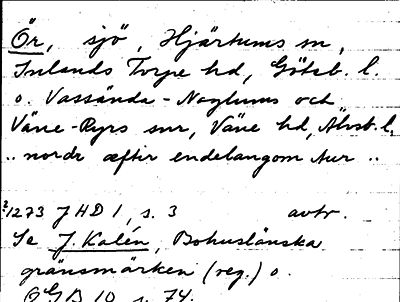 Ör, sjö, Hjärtums sn,
Inlands Torpe hd, Götab. l.
o. Vassända-Naglums och
Väne-Ryrs snr, Väne hd, Älvsb. l.
.. nordr æftir endelangom Aur ..
1273 JHD 1, s. 3 avtr.
Se J. Kalén, Bohuslänska
gränsmärken (reg.) o.
OGB 10 s. 74.